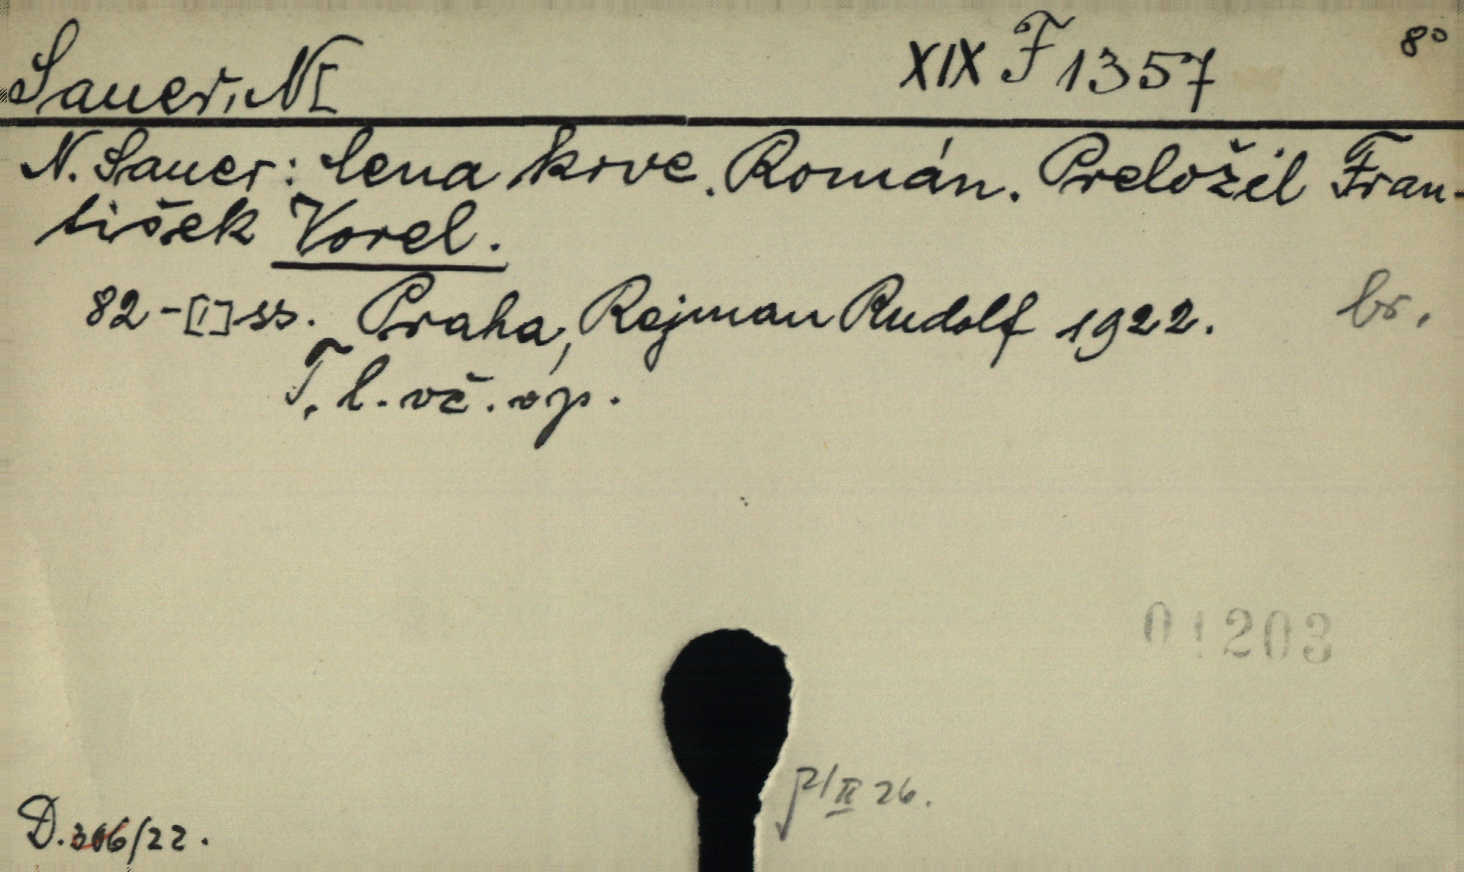 Sauer, N[
XIX F 1357
8°
N. Sauer: lena krve. Román. Preložil Fran-
tišek Vorel.
82-[1] ss. Praha, Rejman Rudolf 1922.
br.
T. l. vč. op.
01203
II 26.
D. 306/22.